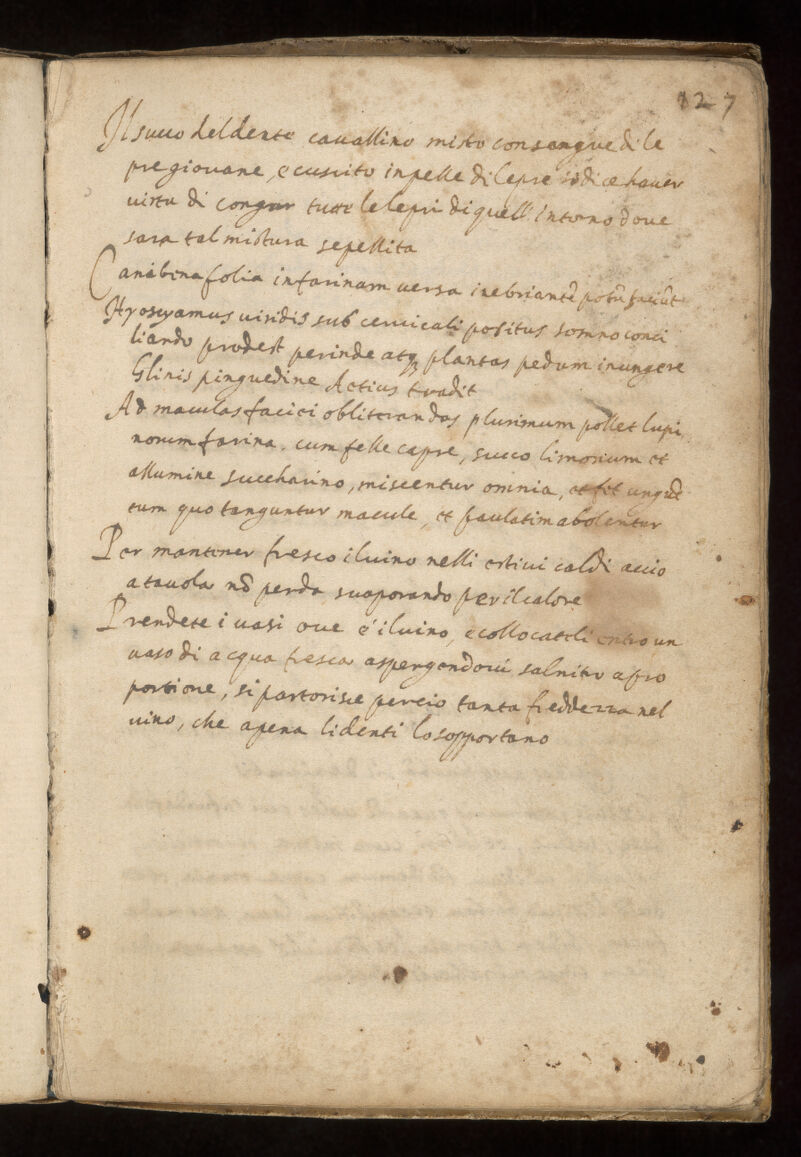 127
Il succo del dente cavallino misto con sangue di le
pre giovane, e cuscito in pelle di lepre si dice haver
virtu di congar tutte le lepri di quell' intorno dove
sara tal mistura sepellita
Canabina folia in farinam versa inebriantẽ potũ faciũt
Hyosciamus viridis sub cervicali positus somno conci
liando prodest perinde atq; plantas pedum inungere
Glinis pinguedine Aetius tradit
Ad maculas faciei obliterandas plurimum pollet lupi
norum farina. cum felle capre, succo limonum et
allumine succharino, miscentur omnia, et fit unguẽ
tum quo tanguntur macule, et paulatim abolentur
Per mantener fresco il vino nelli estivi caldi accio
a tavola nõ perda svaporando per il calore
Prendete i vasi ove é il vino, e collocateli entro un
vaso di acqua fresca aspergendovi salnitro a pro
portione, si partorisce percio tanta freddezza nel
vino, che apena li denti lo sopportano